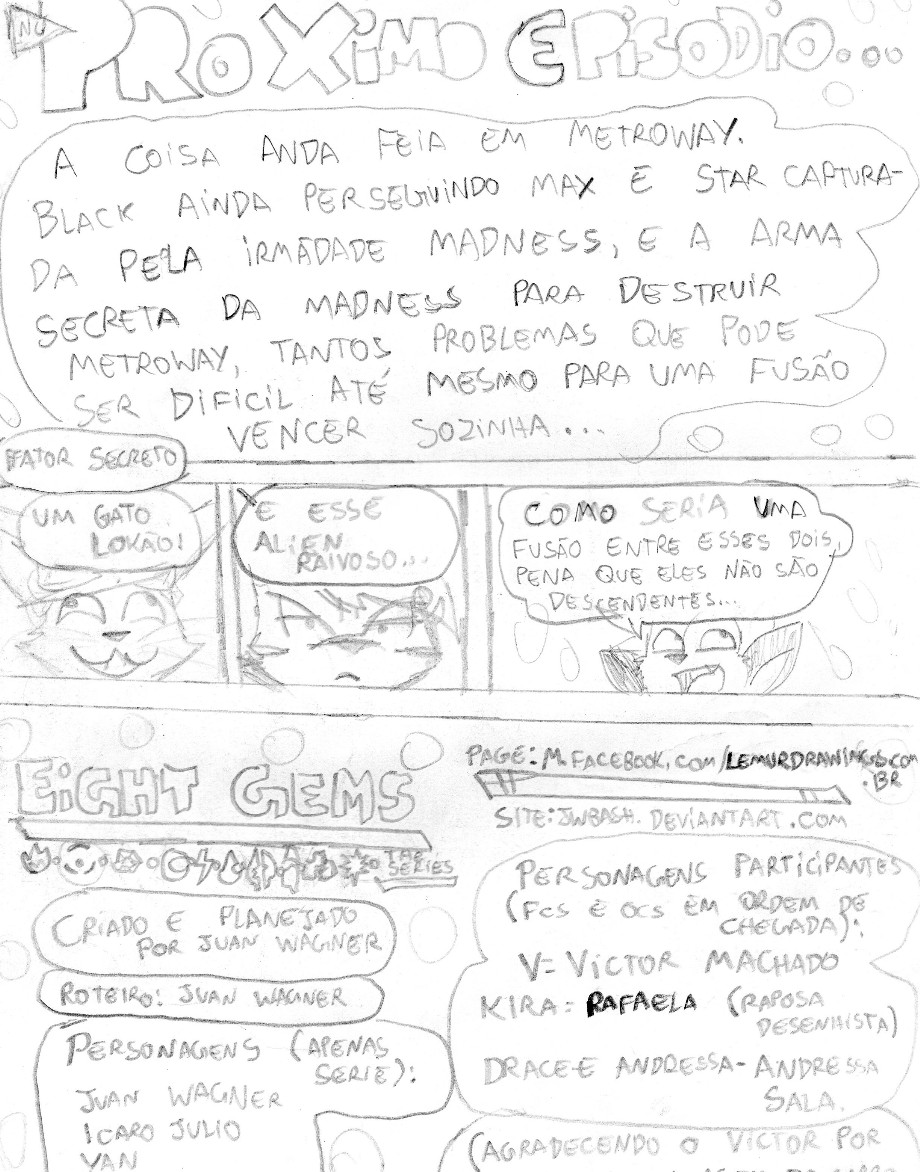 NO
PROXIMO EPISODIO...
A COISA ANDA FEIA EM METROWAY.
BLACK AINDA PERSEGUINDO MAX E STAR CAPTURA-
DA PELA IRMÃDADE MADNESS, E A ARMA
SECRETA DA MADNESS PARA DESTRUIR
METROWAY, TANTOS PROBLEMAS QUE PODE
SER DIFICIL ATÉ MESMO PARA UMA FUSÃO
VENCER SOZINHA...
FATOR SECRETO
UM GATO
LOKÃO!
E ESSE
ALIEN
RAIVOSO...
COMO SERIA UMA
FUSÃO ENTRE ESSES DOIS,
PENA QUE ELES NÃO SÃO
DESCENDENTES...
EIGHT GEMS
THE
SERIES
CRIADO E PLANEJADO
POR JUAN WAGNER
ROTEIRO: JUAN WAGNER
PERSONAGENS (APENAS
SERIE):
JUAN WAGNER
ICARO JULIO
YAN
PAGE: M.FACEBOOK.COM/LEMURDRAWINGS.COM
.BR
SITE: JWBASH.DEVIANTART.COM
PERSONAGENS PARTICIPANTES
(FCS E OCS EM ORDEM DE
CHEGADA):
V= VICTOR MACHADO
KIRA= RAFAELA (RAPOSA
DESENHISTA)
DRACE E ANDRESSA- ANDRESSA
SALA.
(AGRADECENDO O VICTOR POR